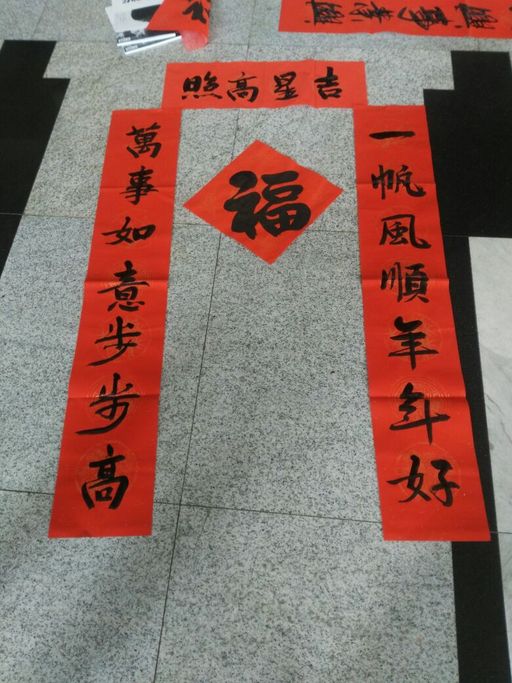 吉星高照
一帆風順年年好
萬事如意步步高
福